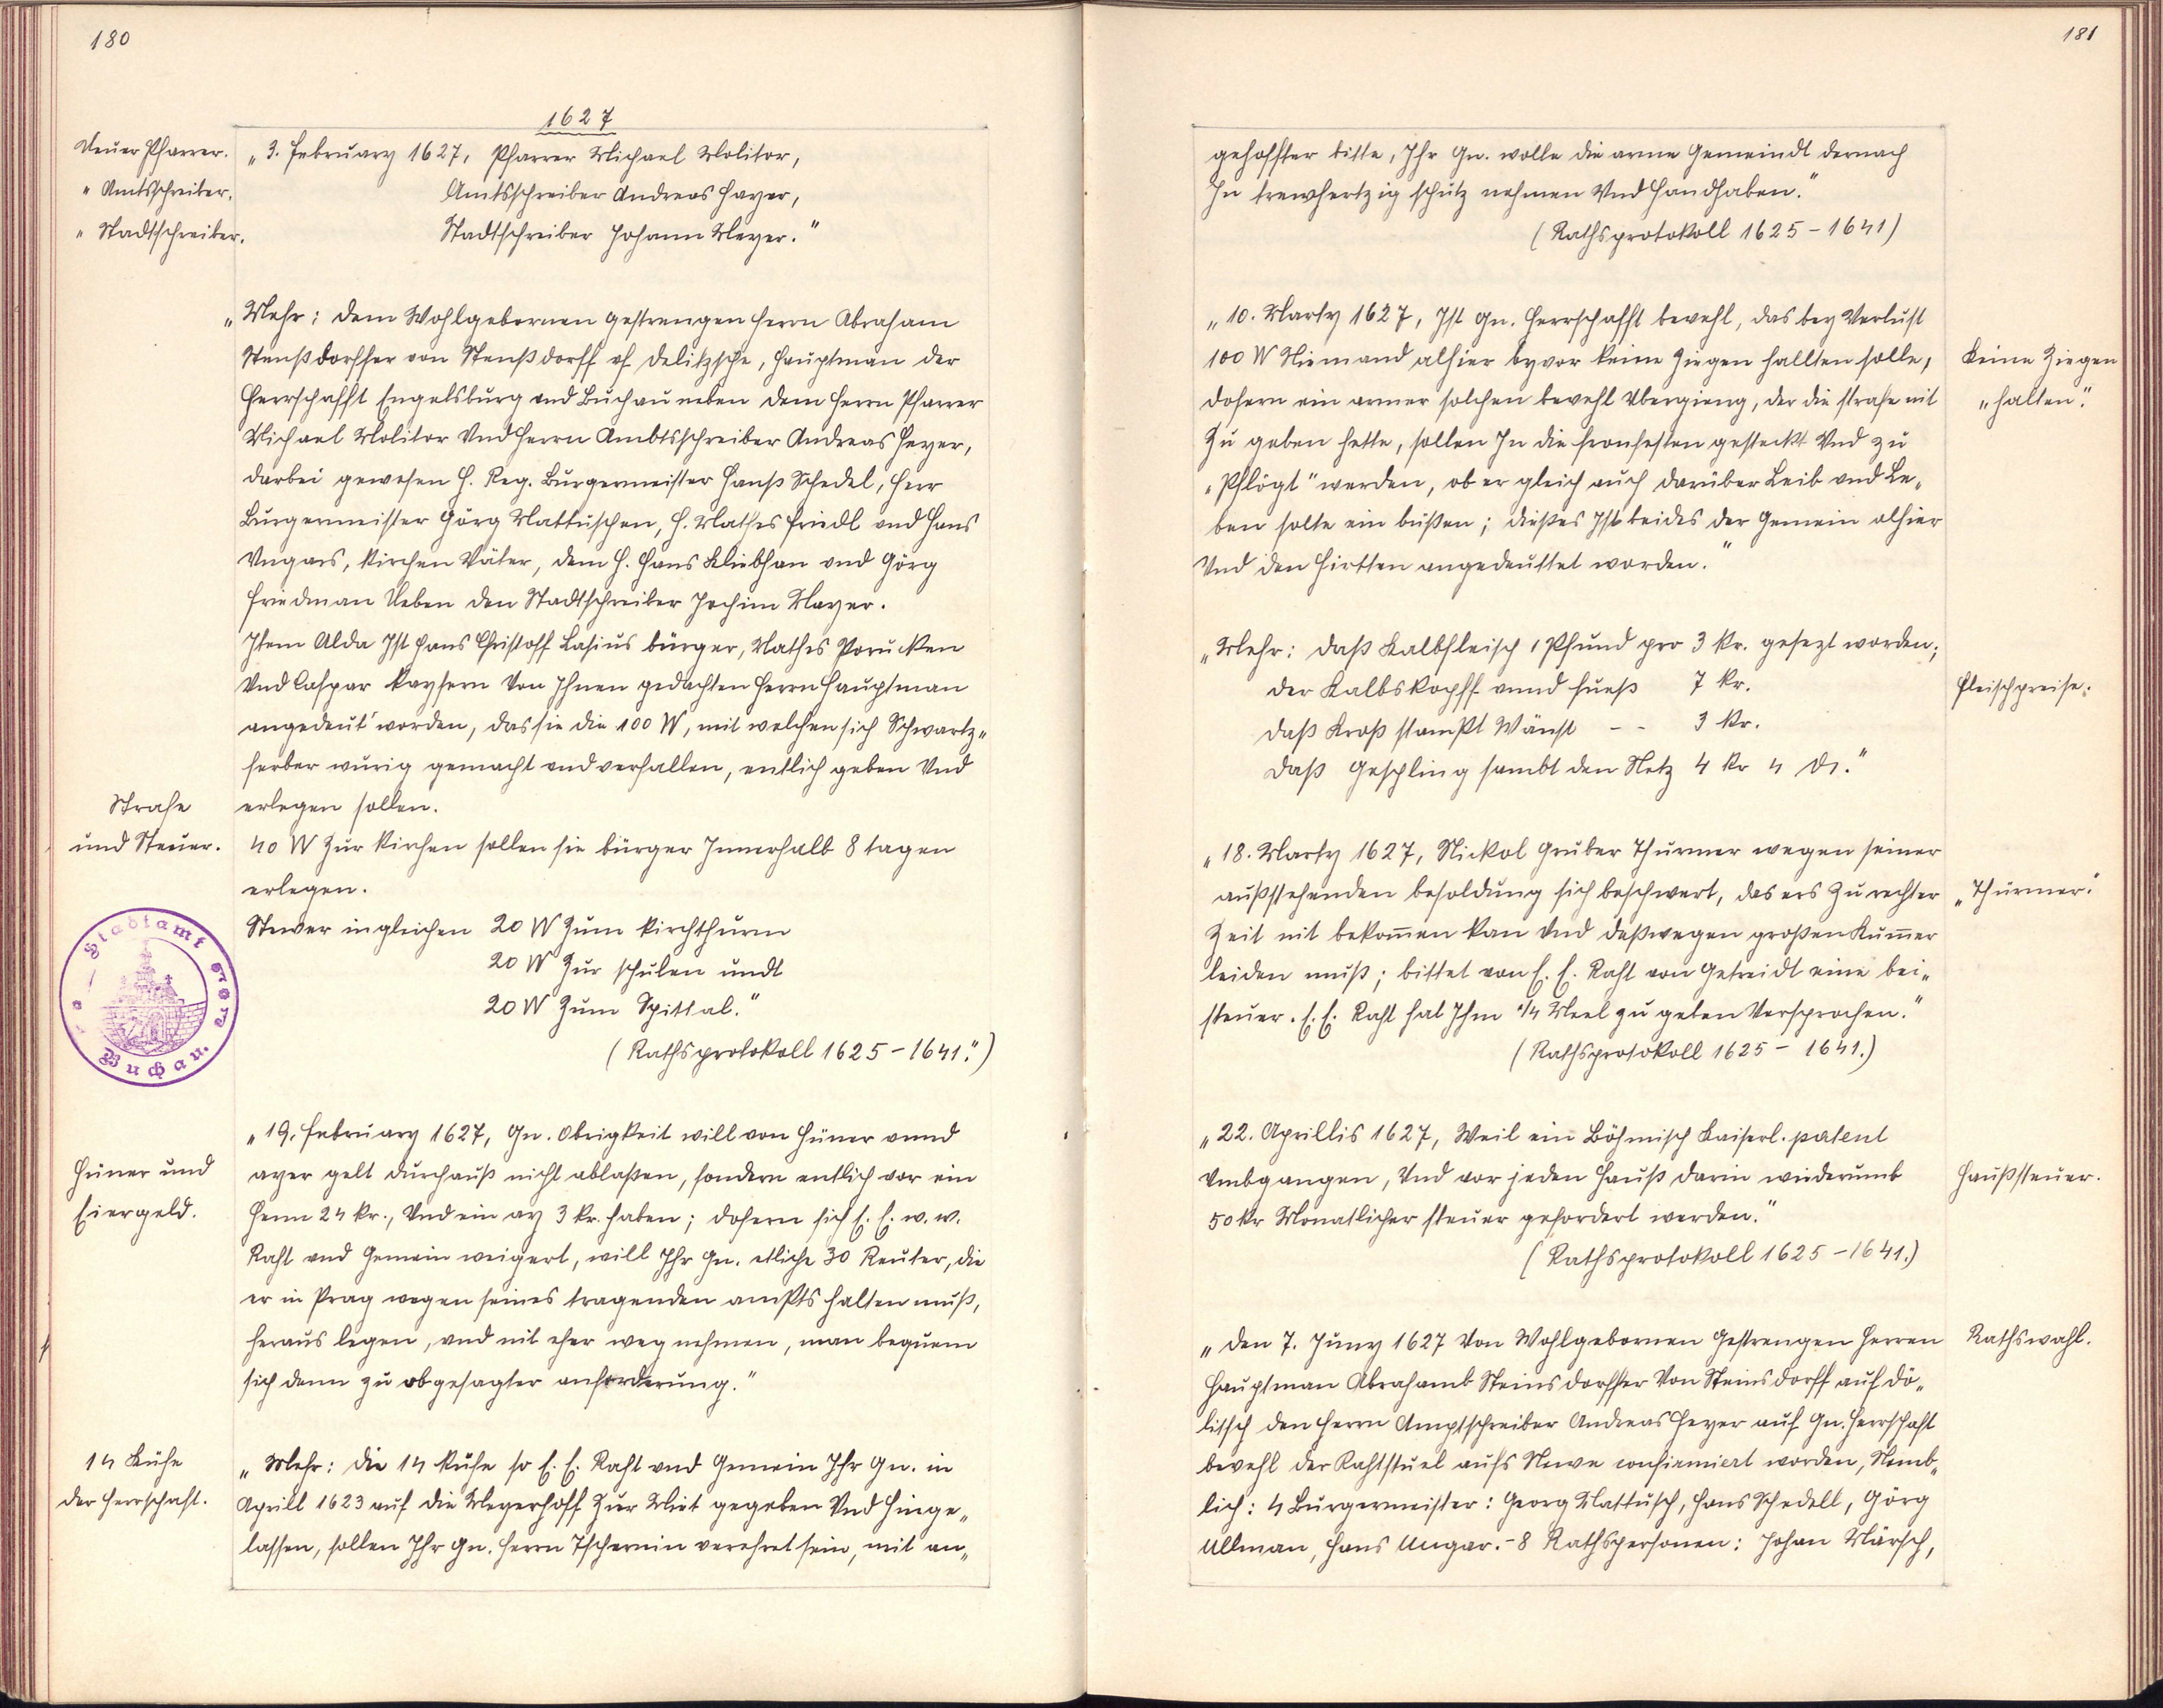 180
1627
Neuer Pfarrer.
" Amtsschreiber.
" Stadtschreiber.
„3. February 1627, Pfarrer Michael Molitor,
Amtsschreiber Andreas Hayer,
Stadtschreiber Johann Meyer."
„Mehr: dem Wohlgebornen gestrengen Herrn Abraham
Stenßdorffer von Stenßdorff uf Delitzsche, Hauptman der
Herrschafft Engelsburg vnd Buchau neben dem Herrn Pfarrer
Michael Molitor Vnd Herrn Ambtsschreiber Andreas Heyer,
darbei gewesen H. Reg. Burgermeister Hanß Schedel, Herr
Burgermeister Görg Mattuschen, H. Mathes Friedl vnd Hans
Vngars, Kirchen Väter, dem H. Hans Kliebhan vnd Görg
Friedman Neben den Stadtschreiber Jochim Mayer.
Item Alda Ist Hans Christoff Lasius bürger, Mathes Porucken
Vnd Caspar Kaysern Von Ihnen gedachten Herrn Hauptman
angedeut' worden, das sie die 100 W, mit welchen sich Schwartz„
ferber wurig gemacht vnd verfallen, entlich geben Vnd
erlegen sollen.
Strafe
und Steuer.
40 W Zur Kirchen sollen sie bürger Innerhalb 8 tagen
erlegen.
Stewer ingleichen 20 W Zum Kirchthurm
20 W Zur schulen undt
20 W Zum Spittal."
(Rathsprotokoll 1625-1641.")
Stadtamt
Buchau.
„19. February 1627, Gn. Obrigkeit will von Hüner vnnd
ayer gelt durchauß nicht ablaßen, sondern entlich vor ein
Henn 24 kr., Vnd ein ay 3 kr. haben; dofern sich E. E. w. w.
Raht vnd Gemein weigert, will Ihr Gn. etliche 30 Reuter, die
er in Prag wegen seines tragenden ampts halten muß,
heraus legen, vnd nit eher weg nehmen, man bequem
sich denn zu obgesagter anforderung."
Hüner und
Eiergeld.
14 Kühe
der Herrschaft.
„Mehr: die 14 Kuhe so E. E. Raht vnd Gemein Ihr Gn. in
Aprill 1623 auf die Meyerhoff Zur Miet gegeben Vnd hinge„
lassen, sollen Ihr Gn. Herrn Tschernin verehret sein, mit an„
181
gehoffter bitte, Ihr Gn. wolle die arme Gemeindt dernach
In trewhertzig schutz nehmen Vnd handhaben."
(Rathsprotokoll 1625-1641)
„10. Marty 1627, Ist Gn. Herrschafft bevehl, das bey Verlust
100 W Niemand alhier byvor keine Ziegen hallten solle,
dofern ein armer solchen bevehl Vbergieng, der die strafe nit
Zu geben hette, sollen In die fronfesten gesteckt Vnd zu
„Pflögt" werden, ob er gleich auch darüber Leib vnd Le„
ben solte ein büßen; dießes Ist beides der Gemein alhier
Vnd den Hirtten angedeuttet worden."
Keine Ziegen
„halten".
„Mehr: daß Kalbfleisch 1 Pfund pro 3 kr. gesezt worden;
der Kalbskopff vnnd fueß 7 kr.
daß Kroß stampt Wänst - - 3 kr.
daß Geschling sambt den Netz 4 kr 4 D."
Fleischpreise:
„18. Marty 1627, Nickol Gruber Thurmer wegen seiner
außstehenden besoldung sich beschwert, das ers Zu rechter
Zeit nit bekom̄en kan vnd deßwegen großen Kum̄er
leiden muß; bittet von E. E. Raht von Getreidt eine bei„
steuer. E. E. Raht hat Ihm 1/4 Meel zu geben Versprochen."
(Rathsprotokoll 1625 - 1641.)
„Thürmer."
„22. Aprillis 1627, Weil ein Böhmisch Kaiserl. patent
Vmbgangen, Vnd vor jeden Hauß darin wiederumb
50 kr Monatlicher steuer gefordert werden."
(Rathsprotokoll 1625-1641.)
Haußsteuer.
„den 7. Juny 1627 Von Wohlgebornen Gestrengen Herren
Hauptman Abrahamb Steinsdorffer Von Steinsdorff auf Dö„
litsch den Herrn Amptschreiber Andreas Heyer auf Gn. Herrschaft
bevehl der Rahtstuel aufs Newe confirmiert worden, Nemb„
lich: 4 Burgermeister: Georg Mattusch, Hans Schedell, Görg
Ullman, Hans Ungar. - 8 Rathspersonen: Johan Märsch,
Rathswahl.